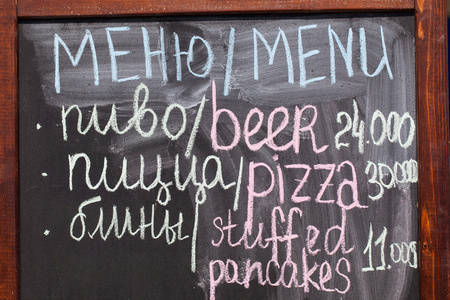 МЕНЮ/MENU
. пиво/beer 24.000
. пицца/pizza 30.000
. блины/stuffed 11.000
pancakes